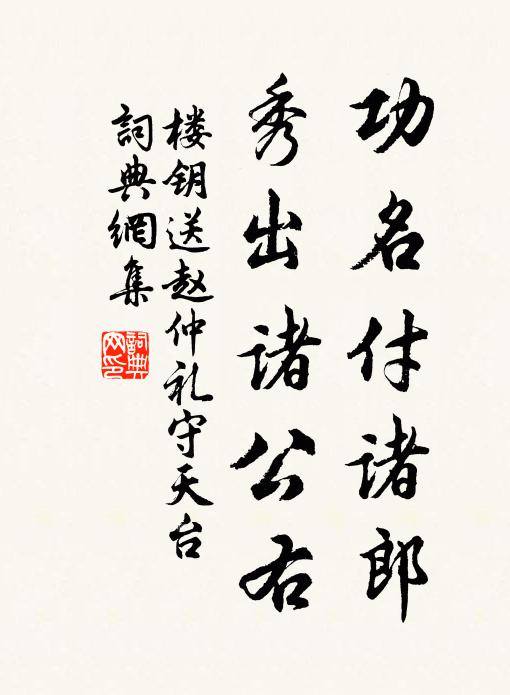 功名付诸郎
秀出诸公右
楼钥送赵仲礼守天台
詞典網集
詞典网印